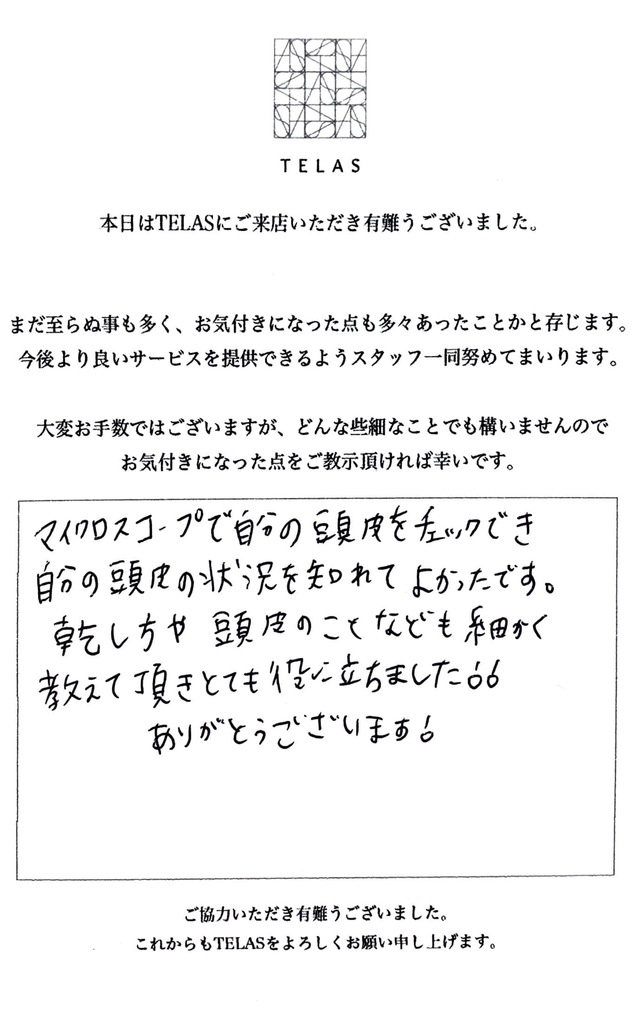 TELAS
本日はTELASにご来店いただき有難うございました。
まだ至らぬ事も多く、お気付きになった点も多々あったことかと存じます。
今後より良いサービスを提供できるようスタッフ一同努めてまいります。
大変お手数ではございますが、どんな些細なことでも構いませんので
お気付きになった点をご教示頂ければ幸いです。
マイクロスコープで自分の頭皮をチェックでき
自分の頭皮の状況を知れてよかったです。
乾し方や頭皮のことなども細かく
教えて頂きとても役に立ちました!!
ありがとうございます!
ご協力いただき有難うございました。
これからもTELASをよろしくお願い申し上げます。